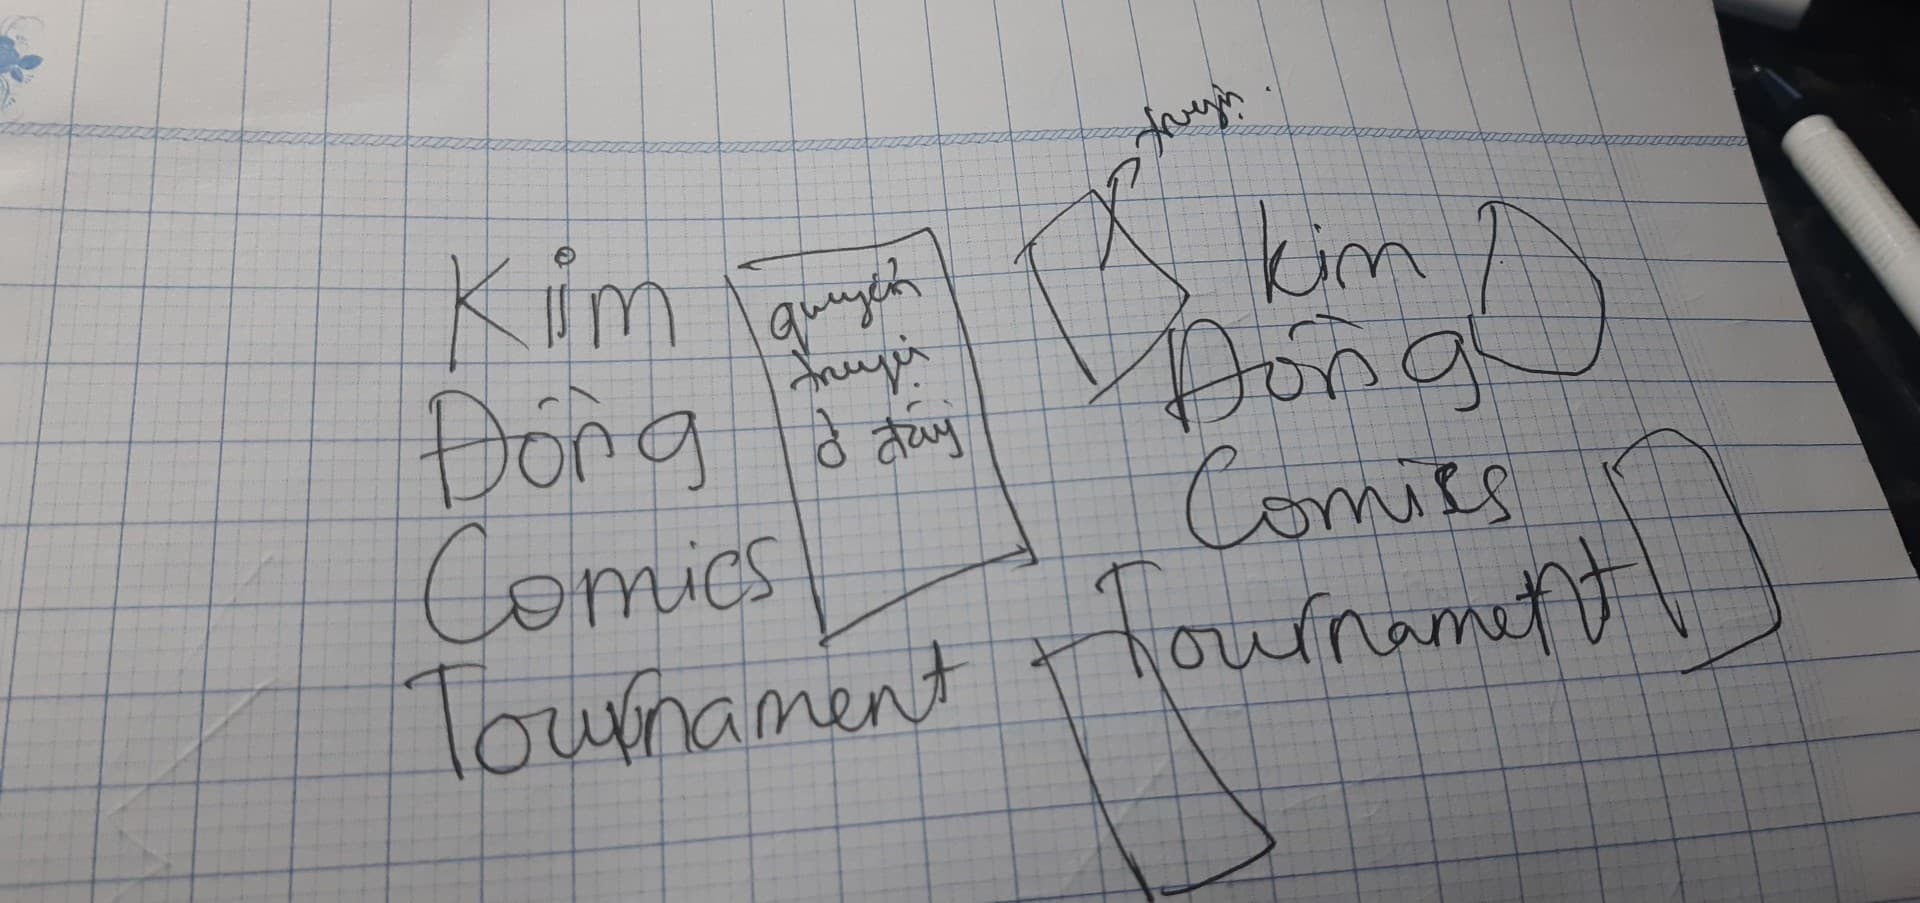 Kim
Đồng
Comics
Tournament
quyển
truyện
ở đây
truyện
Kim
Đồng
Comics
Tournament